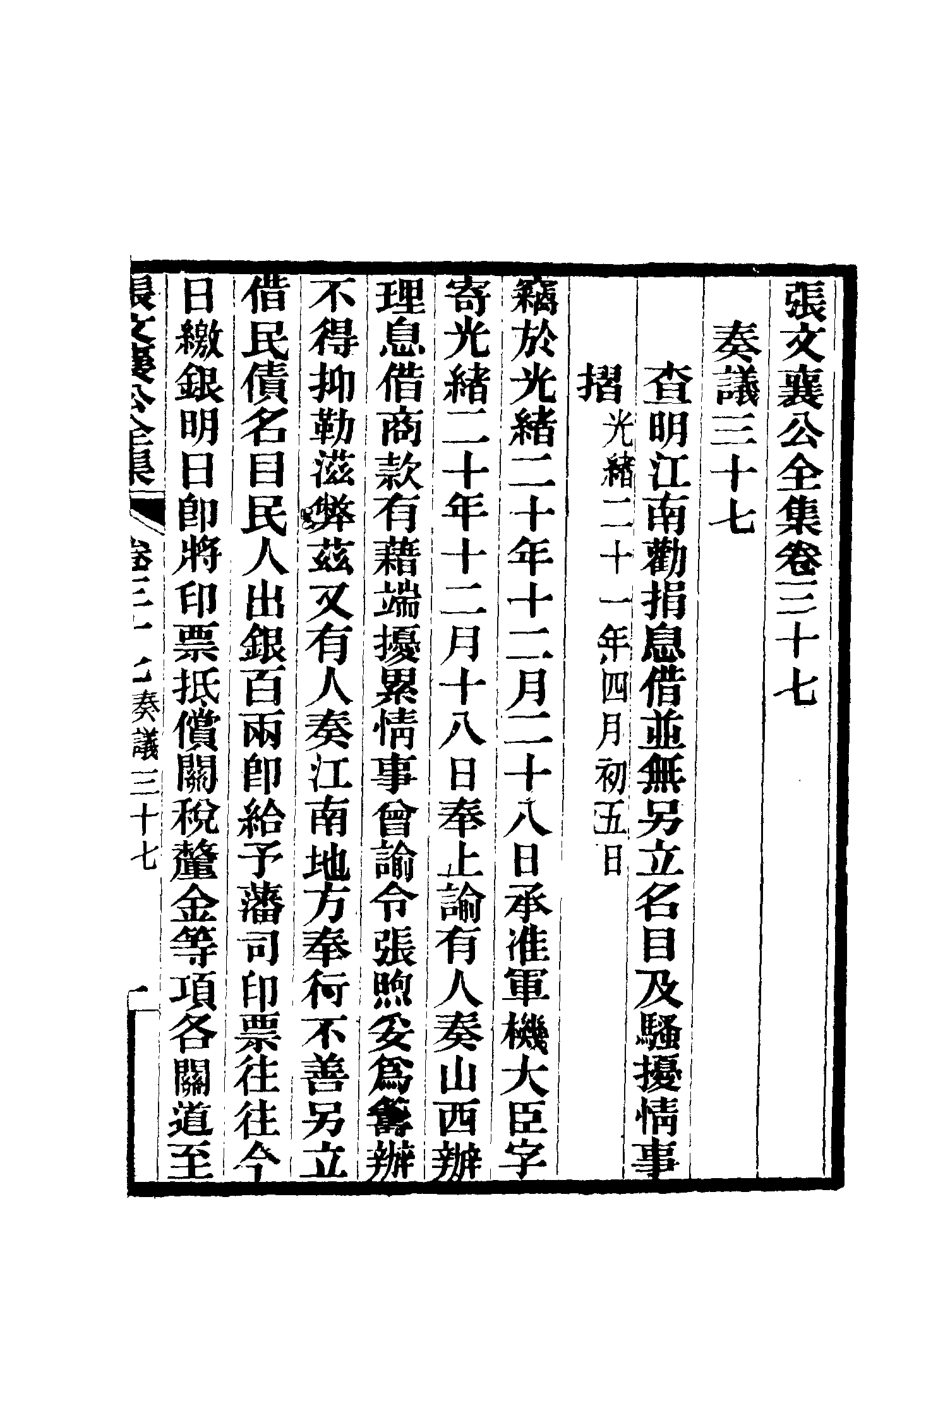 張文襄公全集卷三十七
奏議三十七
查明江南勸捐息借並無另立名目及騷擾情事
摺光緒二十一年四月初五日
竊於光緒二十年十二月二十八日承准軍機大臣字
寄光緒二十年十二月十八日奉上諭有人奏山西辦
理息借商款有藉端擾累情事曾諭令張煦妥爲籌辦
不得抑勒滋弊茲又有人奏江南地方奉行不善另立
借民債名目民人出銀百兩卽給予藩司印票往往今
日繳銀明日卽將印票抵償關稅釐金等項各關道至
張文襄公全集 卷三十七 奏議三十七 一